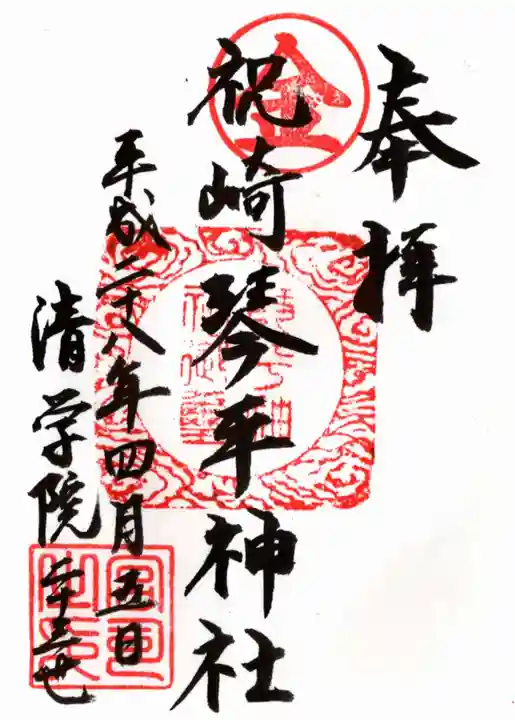 奉拝
金
祝崎琴平神社
平成二十八年四月五日
清学院二十三世